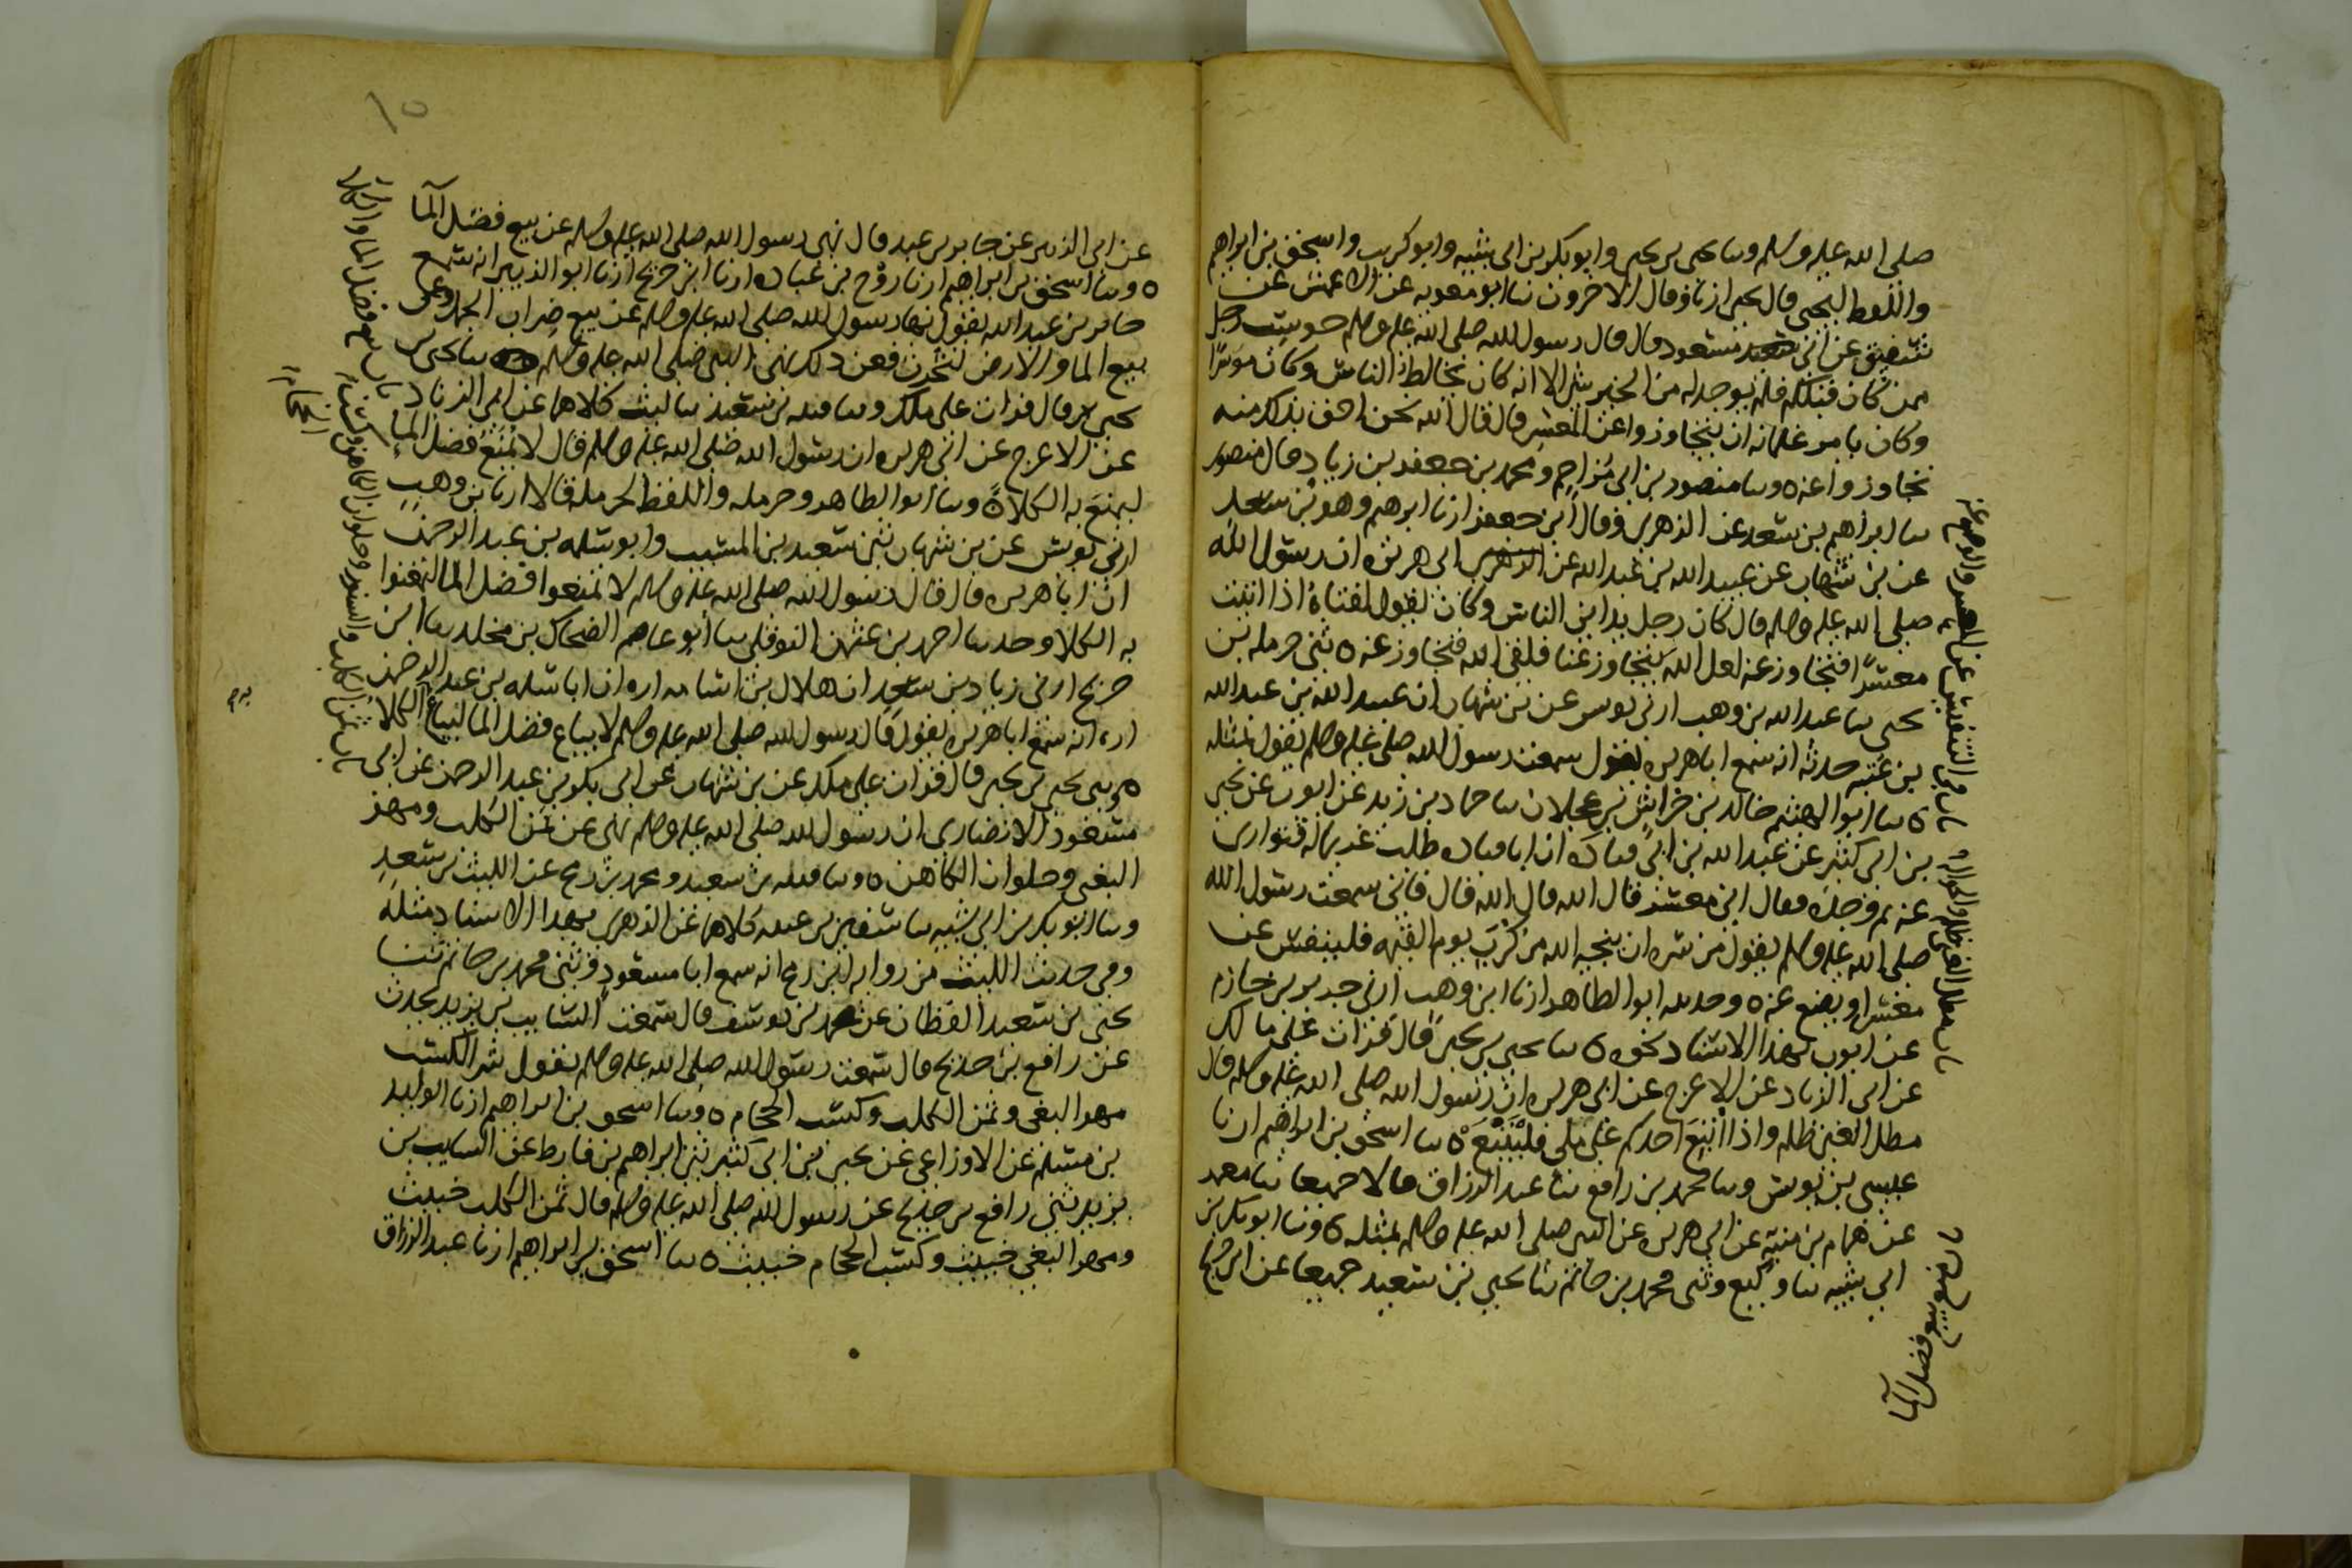 صلى الله عليه وسلم وسا يحيى بن يحيى وابو بكر بن ابي شيبه وابو كريب واسحق بن ابراهيم
واللفظ ليحيى قال يحيى ارنا وقال الاخرون نا ابو معويه عن الاعمش عن
شقيق عن ابي مسعود قال قال رسول الله صلى الله عليه وسلم حوسب رجل
ممن كان قبلكم فلم يوجد له من الخير شي الا انه كان يخالط الناس وكان موسرا
وكان يامر غلمانه ان يتجاوزوا عن المعسر قال قال الله نحن احق بذلك منه
تجاوزوا عنه ٥ وسا منصور بن ابي مزاحم ومحمد بن جعفر بن زياد قال منصور
سا ابراهيم بن سعد عن الزهري وقال ابن جعفر ارنا ابرهيم وهو بن سعد
عن بن شهاب عن عبيد الله بن عبد الله عن ابي هريره ان رسول الله
صلى الله عليه وسلم قال كان رجل يداين الناس وكان يقول لفتاه اذا اتيت
معسرا فتجاوز عنه لعل الله يتجاوز عنا فلقي الله فتجاوز عنه ٥ ثني حرمله بن
يحيى سا عبد الله بن وهب ارني يونس عن بن شهاب ان عبيد الله بن عبد الله
بن عتبه حدثه انه سمع ابا هريره يقول سمعت رسول الله صلى عليه وسلم يقول بمثله
٥ سا ابو الهيثم خالد بن خراش بن عجلان سا حماد بن زيد عن ايوب عن يحيى
بن ابي كثير عن عبد الله بن ابي قتاده ان ابا قتاده طلب غريما له فتوارى
عنه ثم وجده فقال اني معسر قال الله قال الله قال فاني سمعت رسول الله
صلى الله عليه وسلم يقول من سره ان ينجيه الله من كرب يوم القيمه فلينفس عن
معسر او يضع عنه ٥ وحدسه ابو الطاهر ارنا ابن وهب ارني جرير بن حازم
عن ايوب بهذا الاسناد نحوه ٥ سا يحيى بن يحيى قال قرات على مالك
عن ابي الزناد عن الاعرج عن ابي هريره ان رسول الله صلى الله عليه وسلم قال
مطل الغني ظلم واذا اتبع احدكم على ملي فليتبع ٥ سا اسحق بن ابراهيم ارنا
عيسى بن يونس وسا محمد بن رافع نا عبد الرزاق قالا جميعا نا معمر
عن همام بن منبه عن ابي هريره عن النبي صلى الله عليه وسلم بمثله ٥ ونا ابو بكر بن
ابي شيبه سا وكيع وثني محمد بن حاتم نا يحيى بن سعيد جميعا عن ابن جريج
باب في التنفيس عن المعسر والوضع عنه
باب مطل الغني ظلم والحواله
بيع فضل الما
١٥
عن ابي الزبير عن جابر بن عبد قال نهى رسول الله صلى الله عليه وسلم عن بيع فضل الما
٥ وسا اسحق بن ابراهيم ارنا روح بن عباده ارنا ابن جريج ارنا ابو الزبير انه سمع
جابر بن عبد الله يقول نها رسول الله صلى الله عليه وسلم عن بيع ضراب الجمل وعن
بيع الما والارض لتحرث فعن ذلك نهى النبي صلى الله عليه وسلم سا يحيى بن
يحيى قال قرات على ملك وسا قتيبه بن سعيد سا ليث كلاهما عن ابي الزناد
عن الاعرج عن ابي هريره ان رسول الله صلى الله عليه وسلم قال لا يمنع فضل الما
ليمنع به الكلا ٥ وسا ابو الطاهر وحرمله واللفظ لحرمله قالا ارنا بن وهب
ارني يونس عن بن شهاب ثني سعيد بن المسيب وابو سلمه بن عبد الرحمن
ان ابا هريره قال قال رسول الله صلى الله عليه وسلم لا تمنعوا فضل الما لتمنعوا
به الكلا وحدثنا احمد بن عثمن النوفلي سا ابو عاصم الضحاك بن مخلد سا ابن
جريج ارني زياد بن سعد ان هلال بن اسامه اره ان ابا سلمه بن عبد الرحمن
اره انه سمع ابا هريره يقول قال رسول الله صلى الله عليه وسلم لا يباع فضل الما ليباع الكلا
٥ وثني يحيى بن يحيى قال قرات على ملك عن بن شهاب عن ابي بكر بن عبد الرحمن عن ابي
مسعود الانصاري ان رسول الله صلى الله عليه وسلم نهى عن ثمن الكلب ومهر
البغي وحلوان الكاهن ٥ وسا قتيبه بن سعيد ومحمد بن رمح عن الليث بن سعد
وسا ابو بكر بن ابي شيبه سا سفين بن عيينه كلاهما عن الزهري بهذا الاسناد مثله
وفي حديث الليث من روايه ابن رمح انه سمع ابا مسعود وثني محمد بن حاتم ثنا
يحيى بن سعيد القطان عن محمد بن يوسف قال سمعت السايب بن يزيد يحدث
عن رافع بن خديج قال سمعت رسول الله صلى الله عليه وسلم يقول شر الكسب
مهر البغي وثمن الكلب وكسب الحجام ٥ وسا اسحق بن ابراهيم ارنا الوليد
بن مسلم عن الاوزاعي عن يحيى بن ابي كثير ثني ابراهيم بن قارط عن السايب بن
يزيد ثني رافع بن خديج عن رسول الله صلى الله عليه وسلم قال ثمن الكلب خبيث
ومهر البغي خبيث وكسب الحجام خبيث ٥ سا اسحق بن ابراهيم ارنا عبد الرزاق
باب بيع فضل الما والكلا
باب ثمن الكلب والسنور وحلوان الكاهن وكسب
الحجام